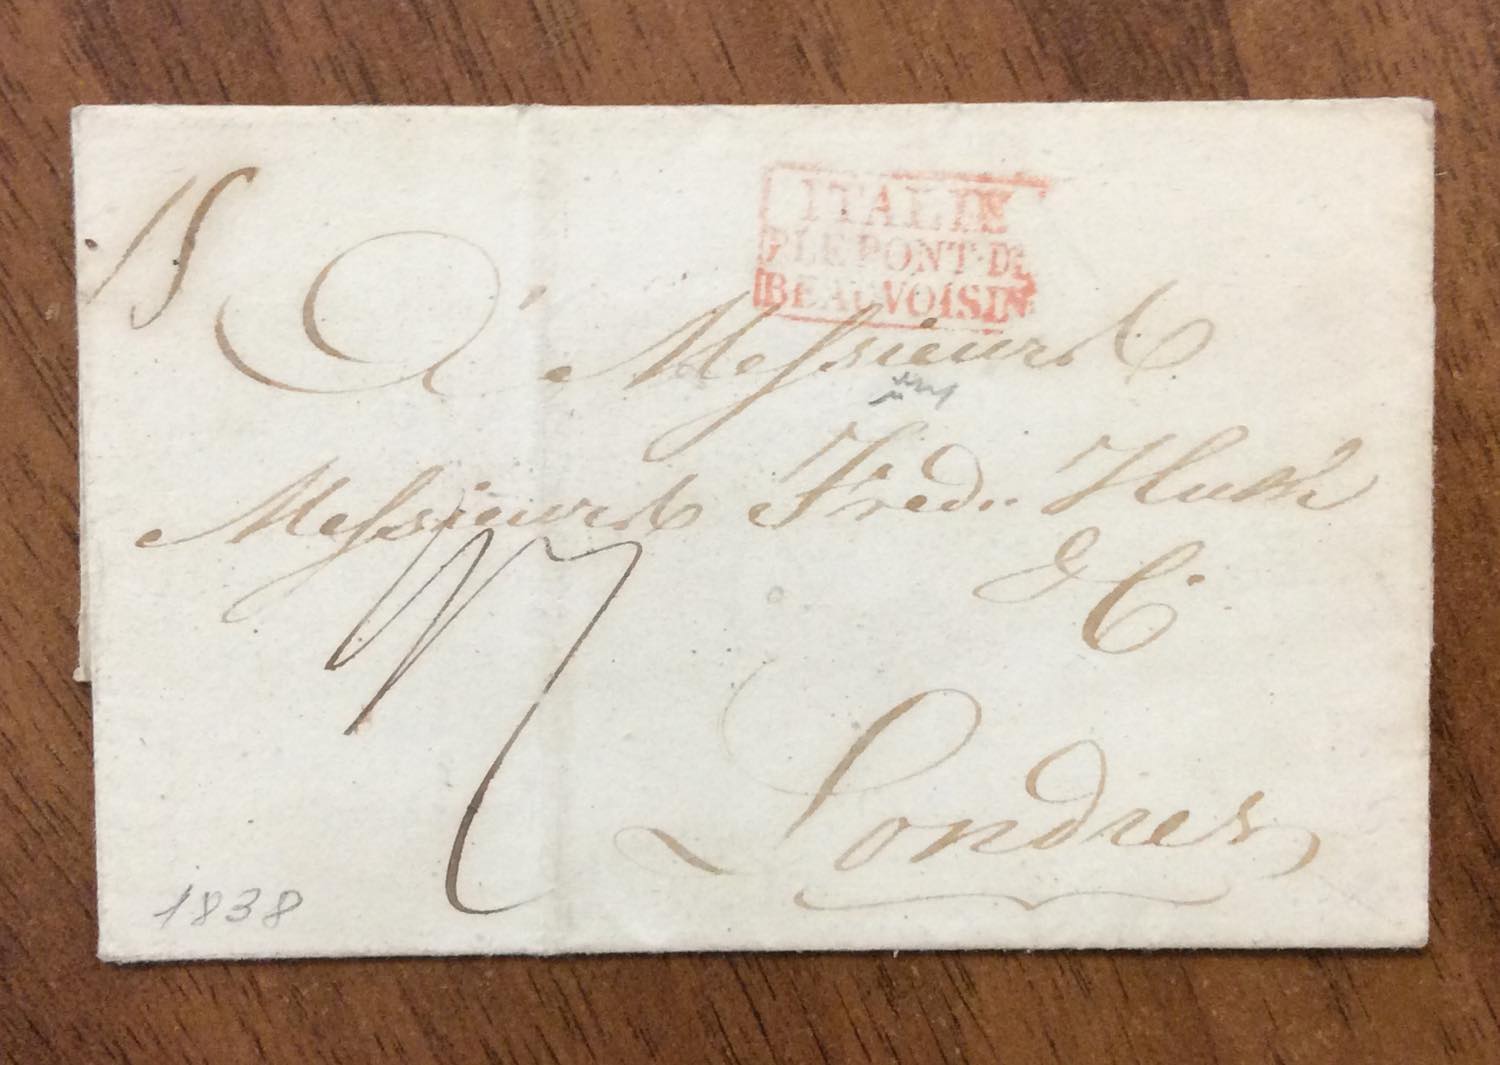 15
ITALIE
P. LE PONT-DE
BEAUVOISIN
A Messieurs
Messieurs Fredc. Huth
& C.
Londres
1838